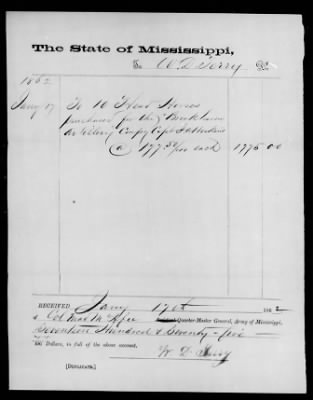 The State of Mississippi,
To W D Terry Dr.
1862
Jany 17 To 10 Head Horses
purchased for the
Artillery Compy Capt
@ 177.50/100 each 1775 00
RECEIVED Jany 17th 1862
of Col Quarter-Master General, Army of Mississippi,
Seventeen Hundred & Seventy-five
Dollars, in full of the above account.
W. D. Terry
[DUPLICATE.]